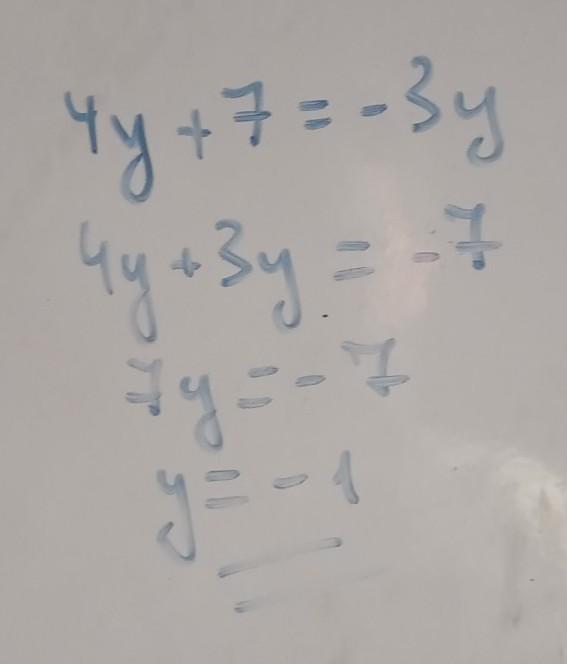 4y + 7 = - 3y
4y + 3y = - 7
7y = - 7
y = - 1